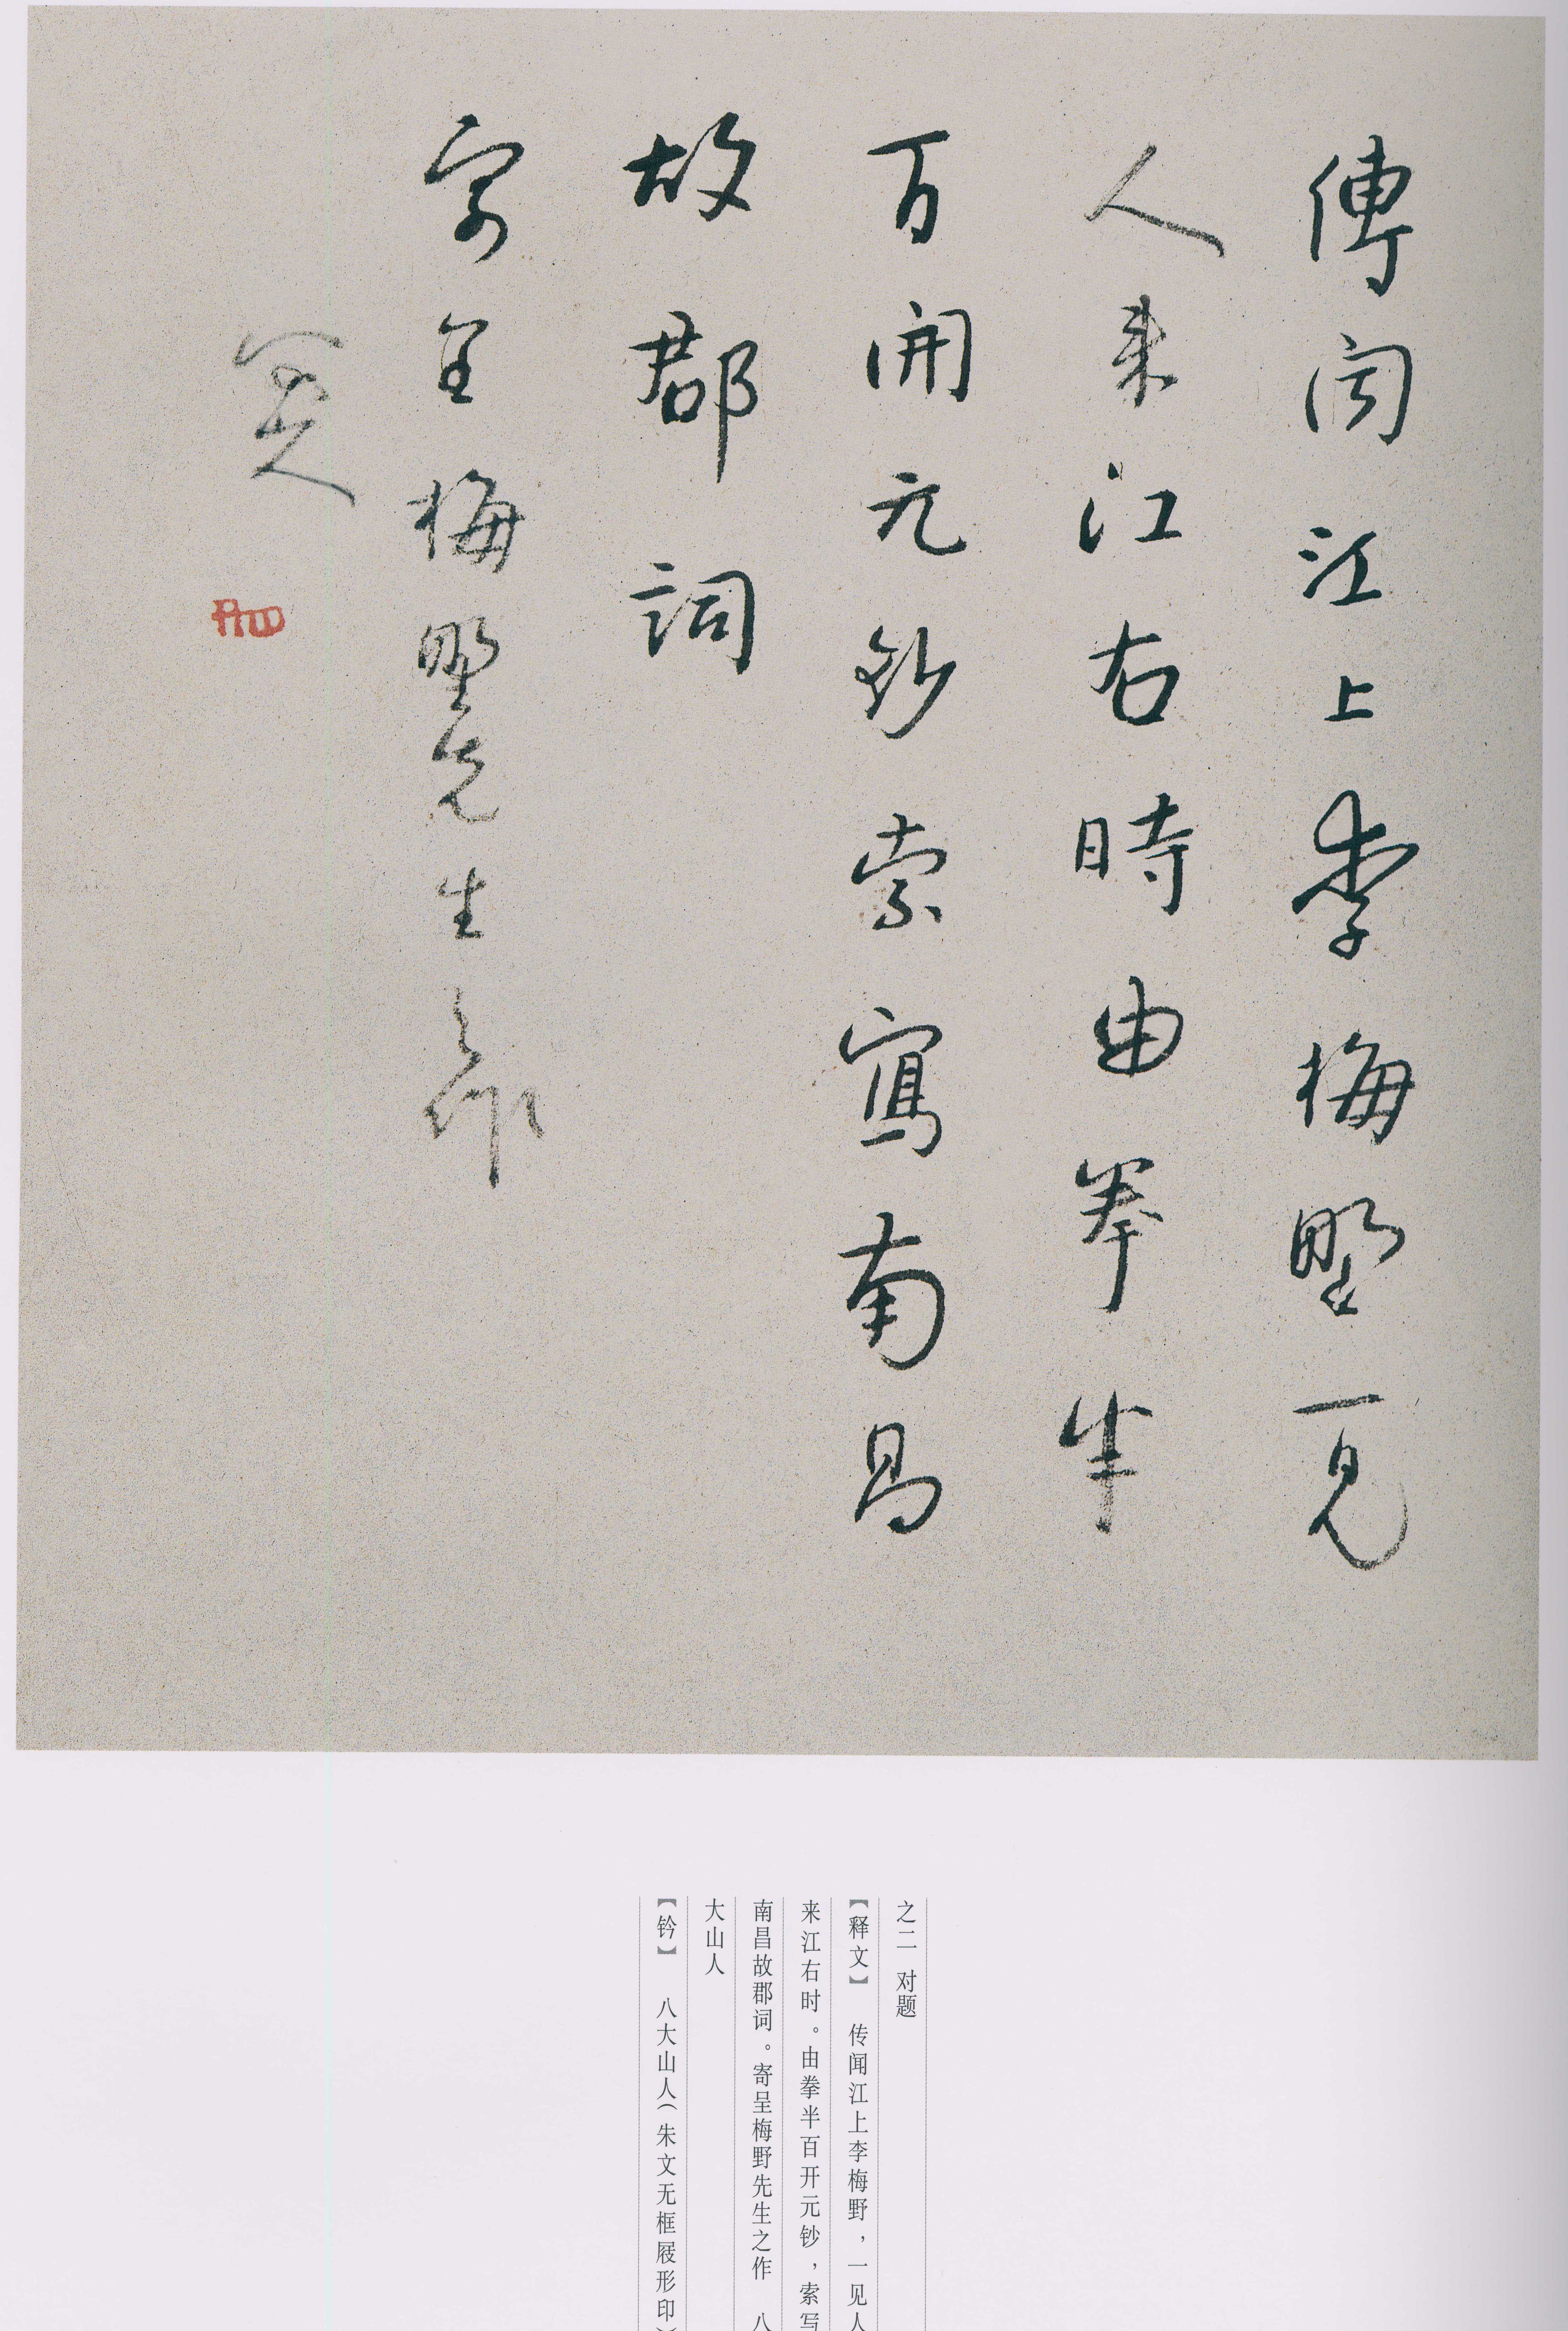 傳聞江上李梅野一見
人来江右時由拳半
百開元鈔索寫南昌
故郡詞
寄呈梅野先生之作
八大山人
之二 对题
【释文】 传闻江上李梅野，一见人
来江右时。由拳半百开元钞，索写
南昌故郡词。寄呈梅野先生之作 八
大山人
【钤】 八大山人（朱文无框屐形印）